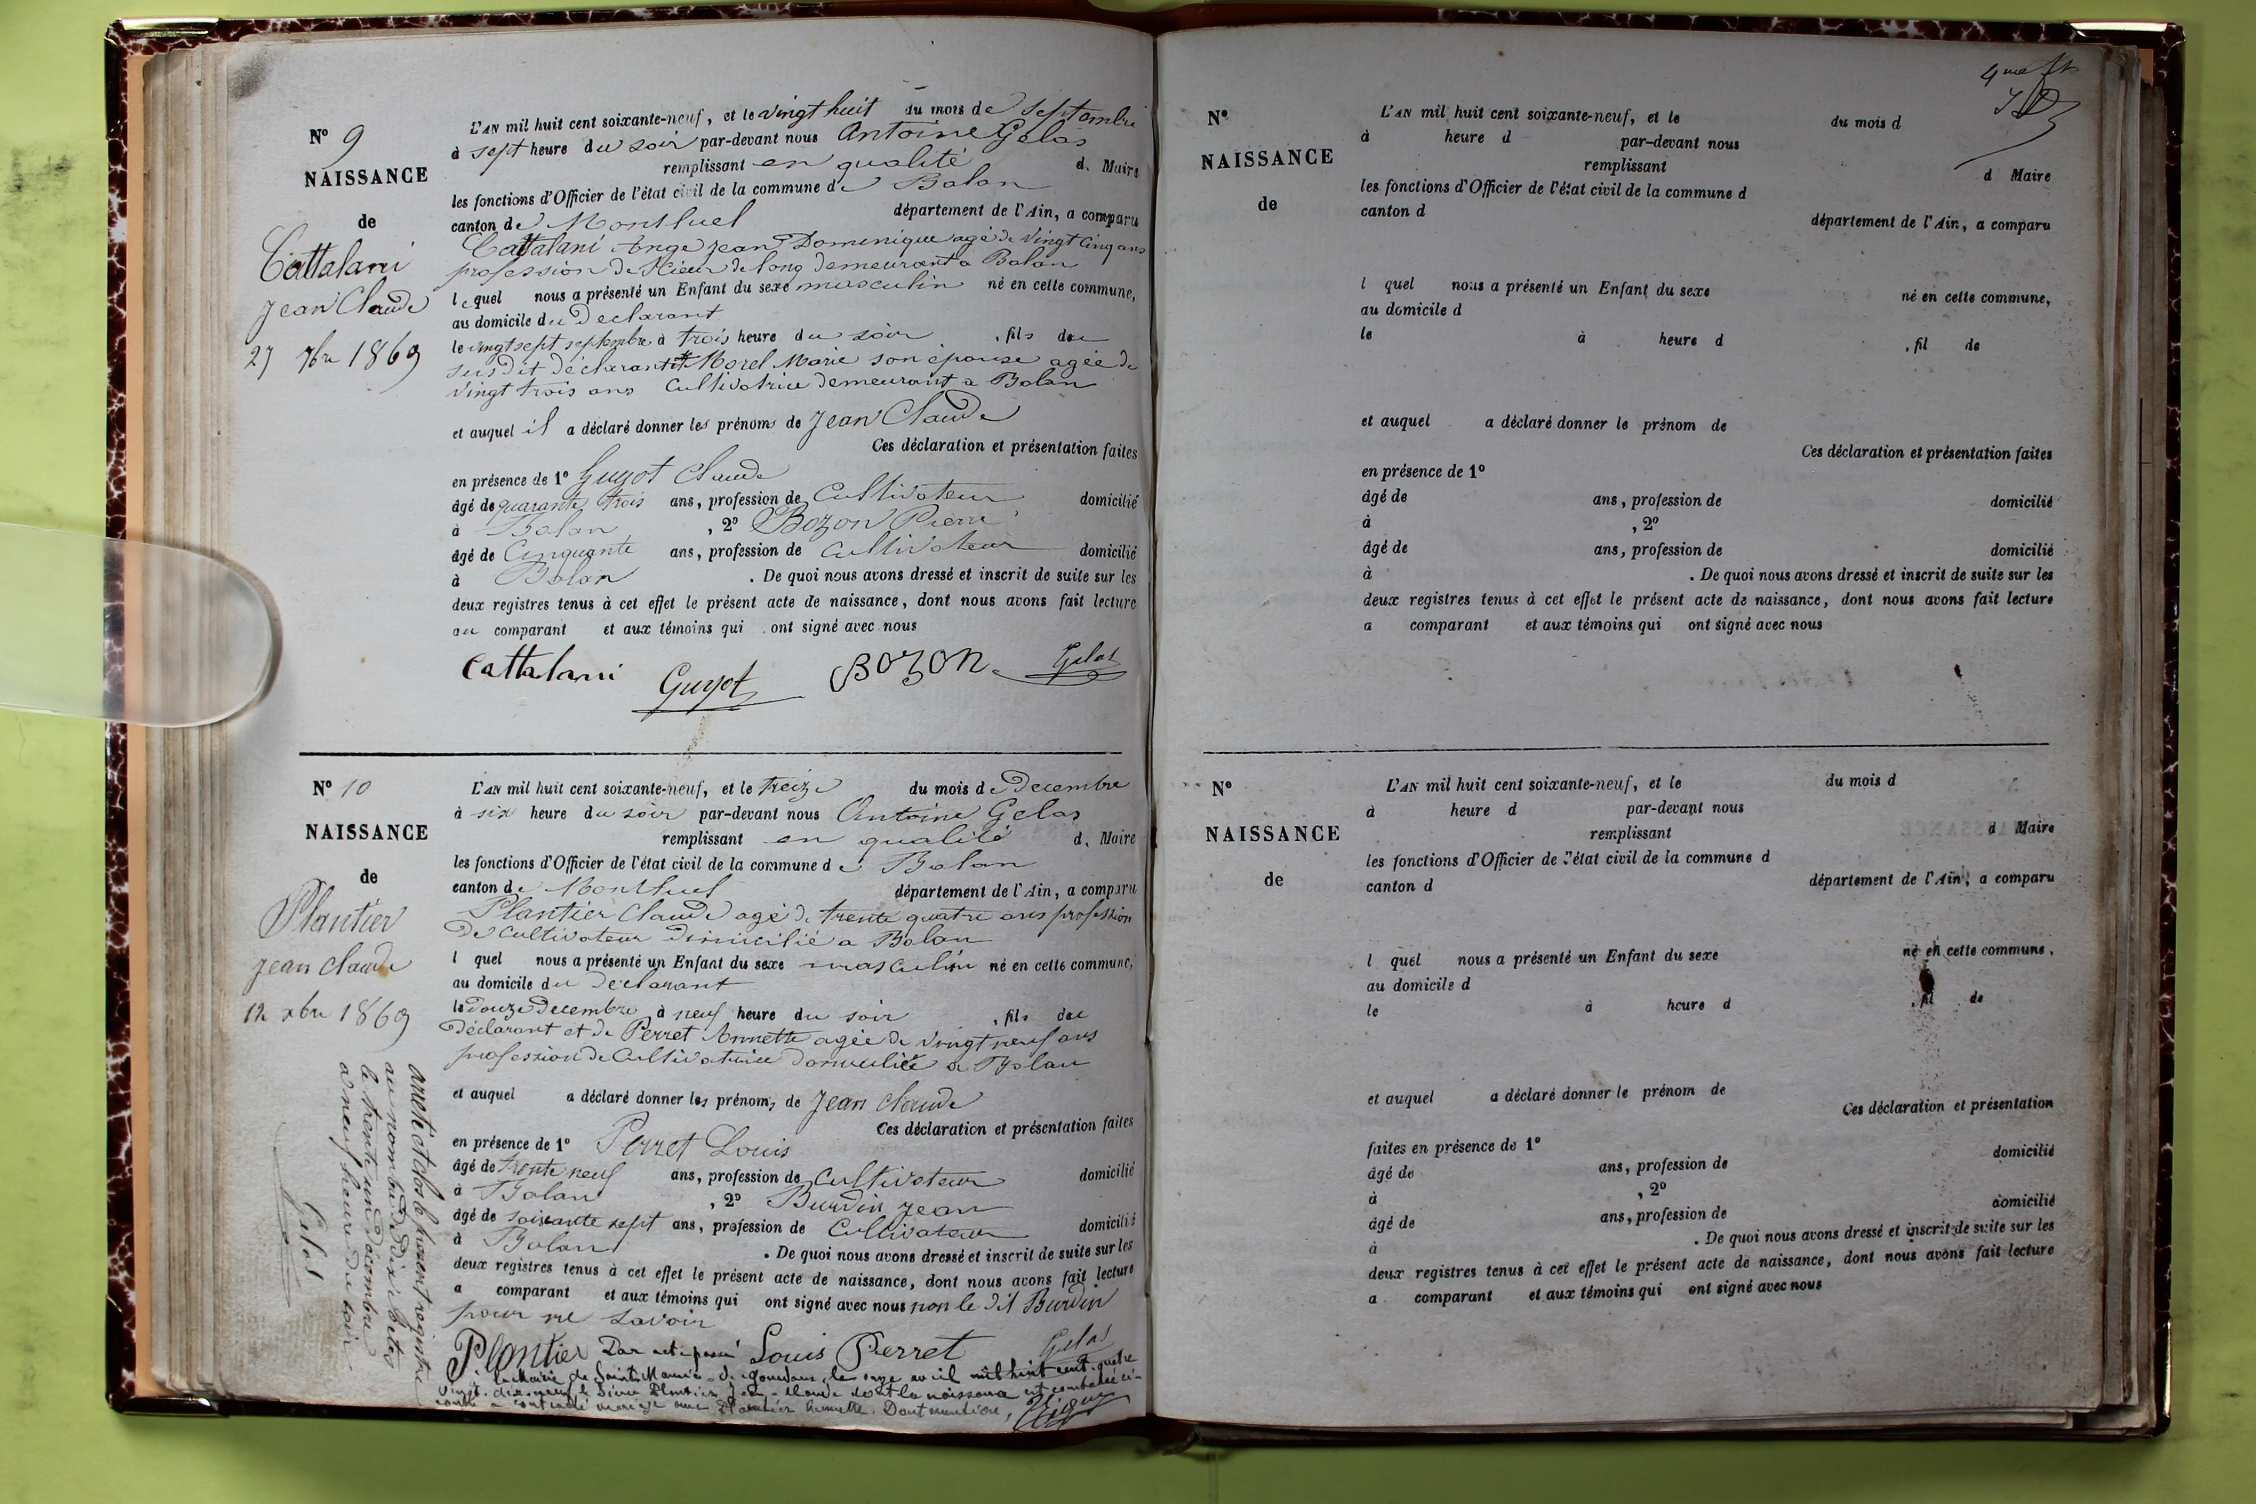 N° 9
NAISSANCE
de
Cattalani
Jean Claude
27 7bre 1869
L'AN mil huit cent soixante-neuf, et le vingt huit du mois de Septembre
à sept heure du soir par-devant nous Antoine Gelas
remplissant en qualité d. Maire
les fonctions d'Officier de l'état civil de la commune de Balan
canton de Montluel département de l'Ain, a comparu
Cattalani Ange Jean Dominique agé de Vingt Cinq ans
profession de Scieur de long demeurant a Balan
lequel nous a présenté un Enfant du sexe masculin né en cette commune,
au domicile du Declarant
le vingt sept septembre à trois heure du soir, fils du
susdit déclarant et Morel Marie son épouse agée de
vingt trois ans Cultivatrice demeurant a Balan
et auquel il a déclaré donner les prénoms de Jean Claude
Ces déclaration et présentation faites
en présence de 1° Guyot Claude
âgé de quarante trois ans, profession de Cultivateur domicilié
à Balan, 2° Bozon Pierre
âgé de Cinquante ans, profession de Cultivateur domicilié
à Balan. De quoi nous avons dressé et inscrit de suite sur les
deux registres tenus à cet effet le présent acte de naissance, dont nous avons fait lecture
au comparant et aux témoins qui ont signé avec nous
Cattalani Guyot Bozon Gelas
N° 10
NAISSANCE
de
Plantier
Jean Claude
12 xbre 1869
L'AN mil huit cent soixante-neuf, et le treize du mois de Decembre
à six heure du soir par-devant nous Antoine Gelas
remplissant en qualité d. Maire
les fonctions d'Officier de l'état civil de la commune de Balan
canton de Montluel département de l'Ain, a comparu
Plantier Claude agé de trente quatre ans profession
de Cultivateur Domicilié a Balan
l quel nous a présenté un Enfant du sexe masculin né en cette commune,
au domicile du Déclarant
le Douze Decembre à neuf heure du soir, fils du
Déclarant et de Perret Annette agée de vingt neuf ans
profession de Cultivatrice domiciliée a Balan
et auquel a déclaré donner les prénoms de Jean Claude
Ces déclaration et présentation faites
en présence de 1° Perret Louis
âgé de trente neuf ans, profession de Cultivateur domicilié
à Balan, 2° Burdin Jean
âgé de soixante sept ans, profession de Cultivateur domicilié
à Balan. De quoi nous avons dressé et inscrit de suite sur les
deux registres tenus à cet effet le présent acte de naissance, dont nous avons fait lecture
a comparant et aux témoins qui ont signé avec nous non le dit Burdin
pour ne savoir
Plantier Louis Perret Gelas
Par acte passé
la Mairie de Saint Maurice de Gourdans, le onze avril mil huit cent quatre
vingt dix neuf le Sieur Plantier Jean-Claude dont la naissance est constatée ci-
contre a contracté mariage avec Plantier Annette. Dont mention,
arreté et clos le present registre
au nombre de Dix Actes
le trente un Décembre
a neuf heure du soir
Gelas
4me ft
N°
NAISSANCE
de
L'AN mil huit cent soixante-neuf, et le du mois d
à heure d par-devant nous
remplissant d Maire
les fonctions d'Officier de l'état civil de la commune d
canton d département de l'Ain, a comparu
l quel nous a présenté un Enfant du sexe né en cette commune,
au domicile d
le à heure d, fil de
et auquel a déclaré donner le prénom de
Ces déclaration et présentation faites
en présence de 1°
âgé de ans, profession de domicilié
à, 2°
âgé de ans, profession de domicilié
à. De quoi nous avons dressé et inscrit de suite sur les
deux registres tenus à cet effet le présent acte de naissance, dont nous avons fait lecture
a comparant et aux témoins qui ont signé avec nous
N°
NAISSANCE
de
L'AN mil huit cent soixante-neuf, et le du mois d
à heure d par-devant nous
remplissant d Maire
les fonctions d'Officier de l'état civil de la commune d
canton d département de l'Ain, a comparu
l quel nous a présenté un Enfant du sexe né en cette commune,
au domicile d
le à heure d, fil de
et auquel a déclaré donner le prénom de
Ces déclaration et présentation
faites en présence de 1° domicilié
âgé de ans, profession de
à, 2° domicilié
âgé de ans, profession de
à. De quoi nous avons dressé et inscrit de suite sur les
deux registres tenus à cet effet le présent acte de naissance, dont nous avons fait lecture
a comparant et aux témoins qui ont signé avec nous